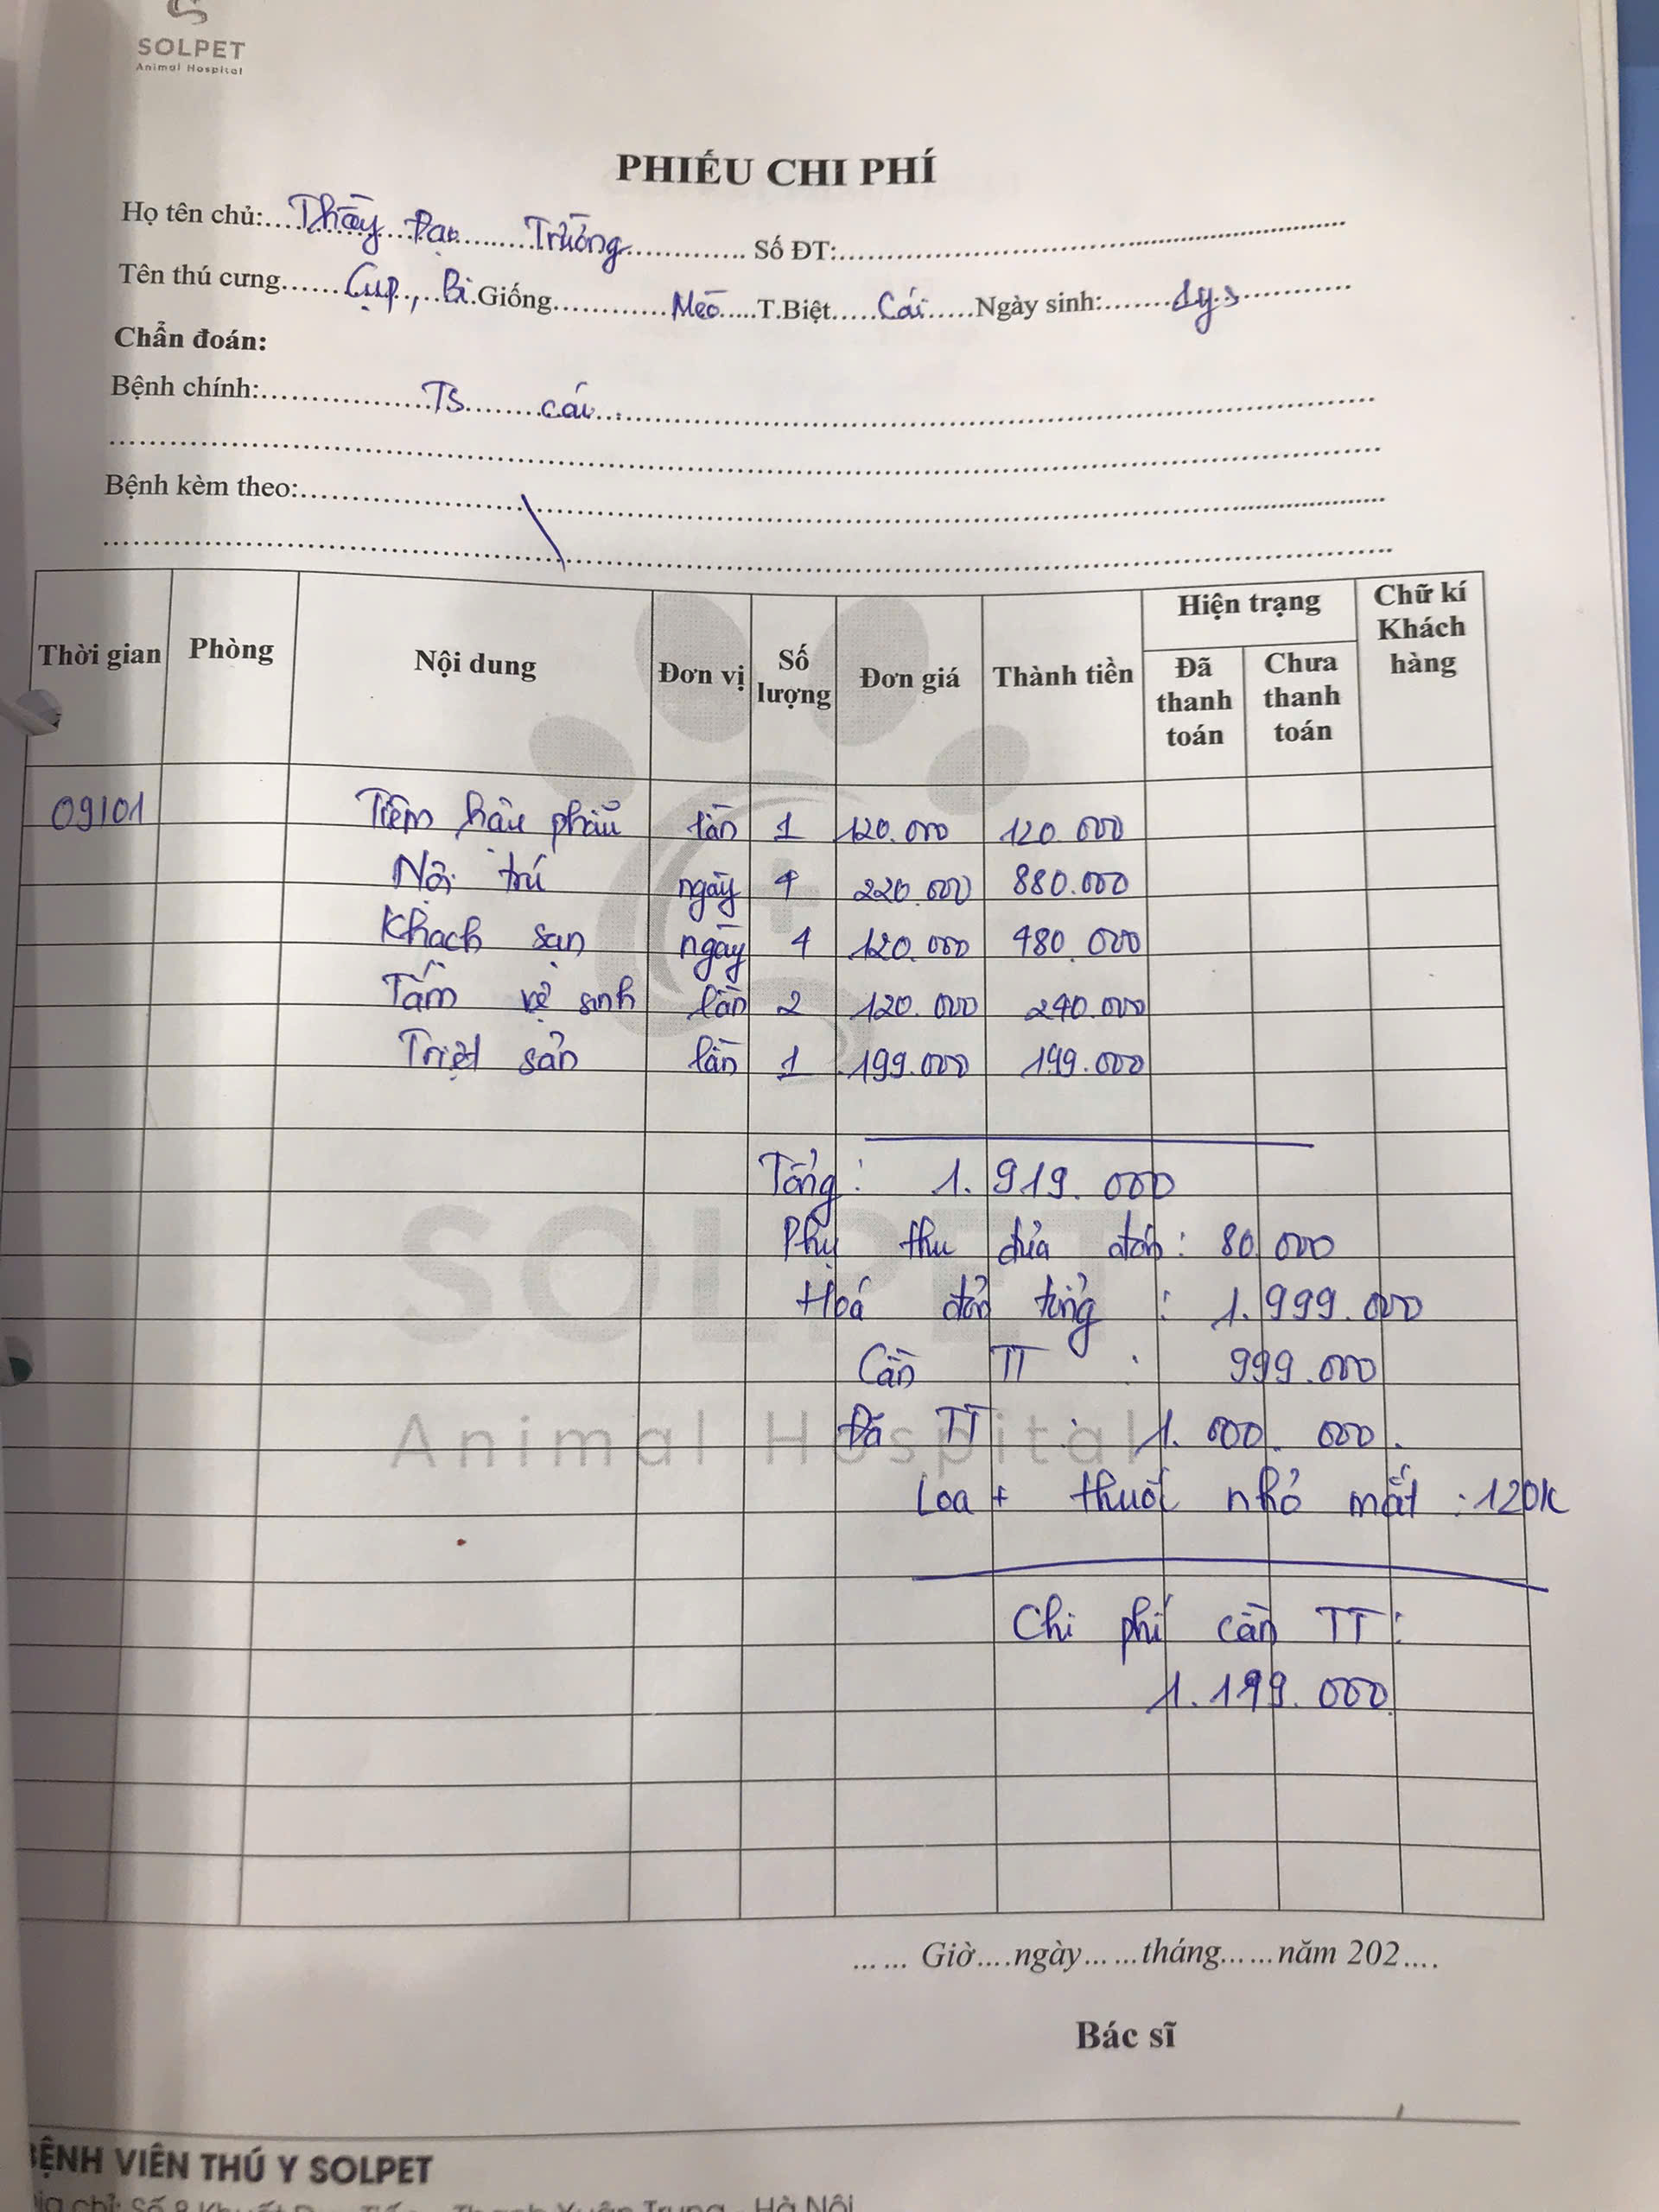 SOLPET
Animal Hospital
PHIẾU CHI PHÍ
Họ tên chủ: Thầy Đạo Trường Số ĐT:
Tên thú cưng Cụp, Bi Giống Mèo T.Biệt Cái Ngày sinh: 1y5
Chẩn đoán:
Bệnh chính: TS cái
Bệnh kèm theo:
Thời gian Phòng Nội dung Đơn vị Số lượng Đơn giá Thành tiền Hiện trạng Đã thanh toán Chưa thanh toán Chữ kí Khách hàng
09/01 Tiêm hậu phẫu lần 1 120.000 120.000
Nội trú ngày 4 220.000 880.000
Khách sạn ngày 4 120.000 480.000
Tắm vệ sinh lần 2 120.000 240.000
Triệt sản lần 1 199.000 199.000
Tổng: 1.919.000
Phụ thu đưa đón: 80.000
Hoá đơn tổng : 1.999.000
Cần TT : 999.000
Đã TT : 1.000.000.
Loa + thuốc nhỏ mắt : 120K
Chi phí cần TT:
1.199.000
SOLPET
Animal Hospital
...... Giờ....ngày......tháng......năm 202....
Bác sĩ
BỆNH VIÊN THÚ Y SOLPET